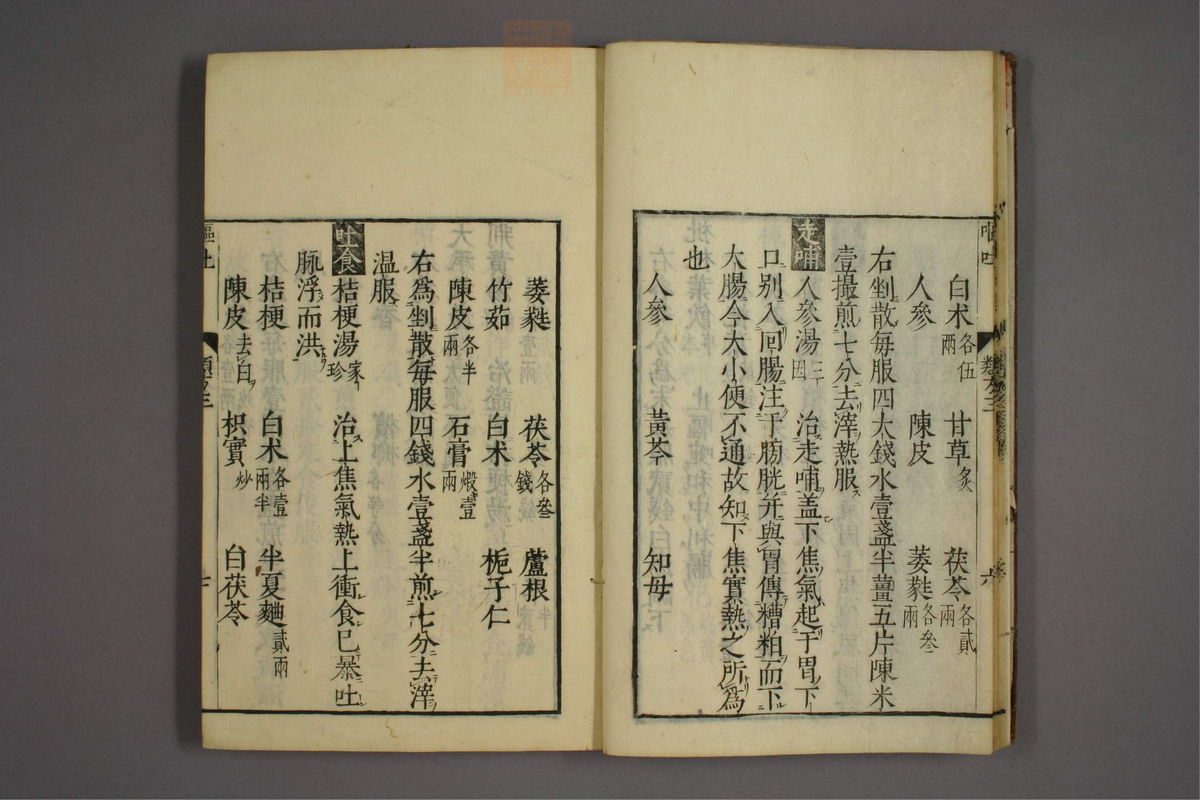 白术各伍兩　甘草炙　茯苓各貳兩
人參　陳皮　萎蕤各叁兩
右剉散每服四大錢水壹盞半薑五片陳米
壹撮煎七分去滓熱服
走哺　人參湯三因　治走哺蓋下焦氣起于胃下
口別入回腸注于膀胱并與胃傳糟粕而下
大腸今大小便不通故知下焦實熱之所爲
也
人參　黃芩　知母
萎蕤壹兩　茯苓各叁錢　蘆根
竹茹　白术　梔子仁
陳皮各半兩　石膏煅壹兩
右爲剉散每服四錢水壹盞半煎七分去滓
温服
吐食　桔梗湯家珍　治上焦氣熱上衝食已暴吐
脉浮而洪
桔梗　白术各壹兩半　半夏麯貳兩
陳皮去白　枳實炒　白茯苓
嘔吐